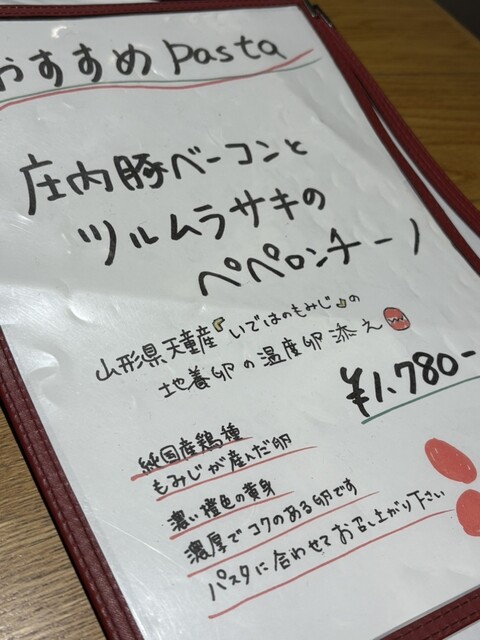 おすすめ pasta
庄内豚ベーコンと
ツルムラサキの
ペペロンチーノ
山形県天童産『いではのもみじ』の
地養卵の温度卵添え
¥1,780-
純国産鶏種
もみじが産んだ卵
濃い橙色の黄身
濃厚でコクのある卵です
パスタに合わせてお召し上がり下さい